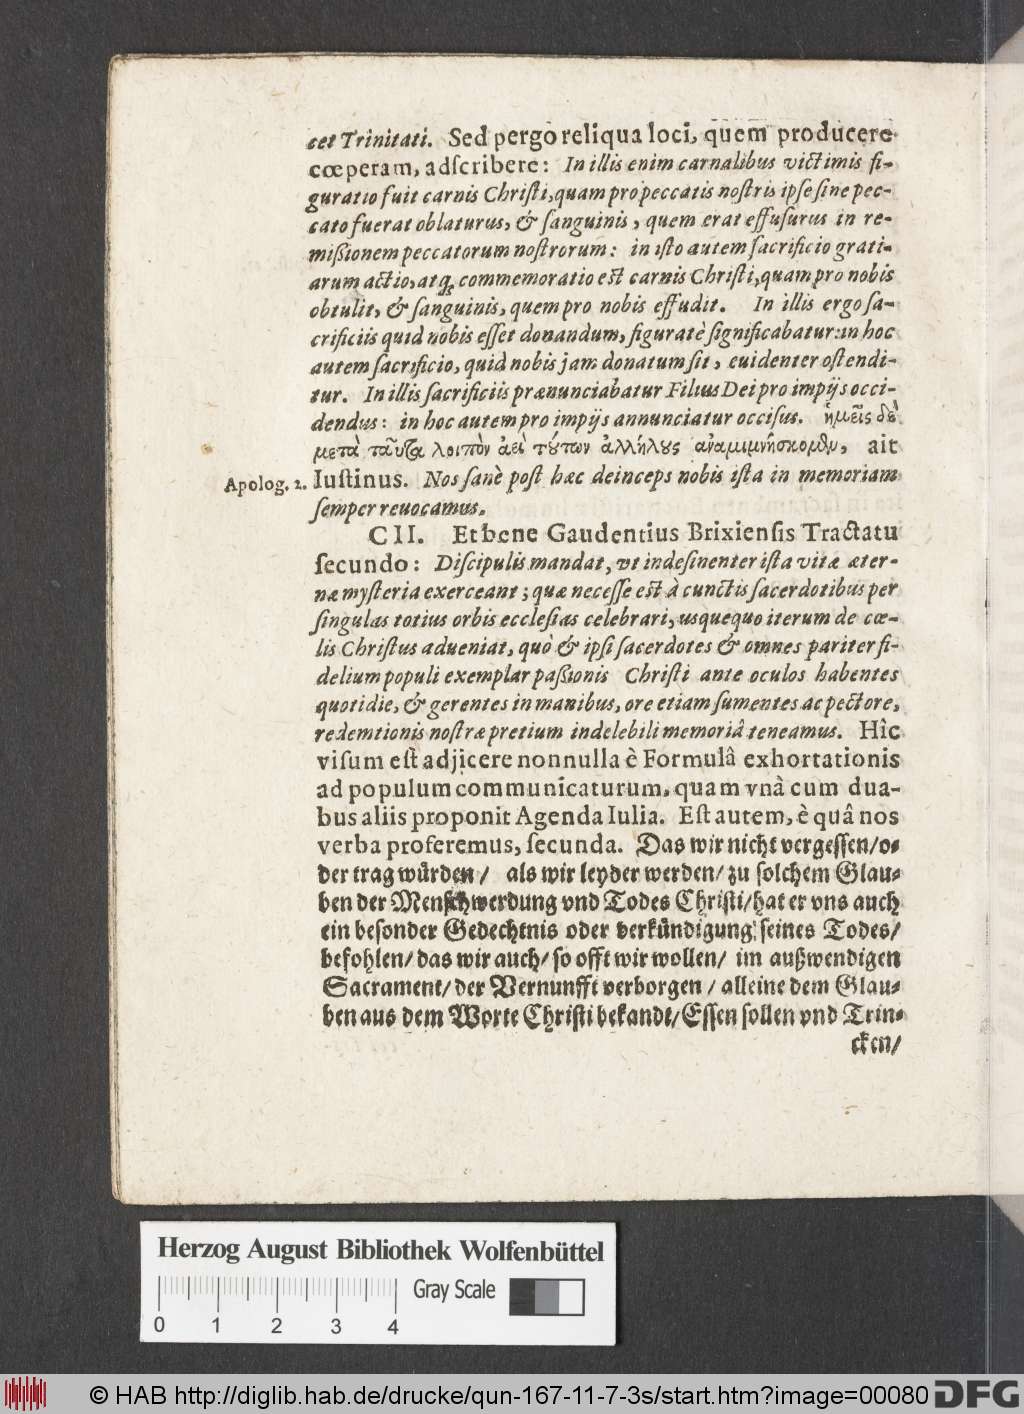 cet Trinitati. Sed pergo reliqua loci, quem producere
cœperam, adſcribere: In illis enim carnalibus victimis fi-
guratio fuit carnis Chriſti, quam pro peccatis noſtris ipſe ſine pec-
cato fuerat oblaturus, & ſanguinis, quem erat effuſurus in re-
mißionem peccatorum noſtrorum: in iſto autem ſacrificio grati-
arum actio, atq; commemoratio eſt carnis Chriſti, quam pro nobis
obtulit, & ſanguinis, quem pro nobis effudit. In illis ergo ſa-
crificiis quid nobis eſſet donandum, figuratè ſignificabatur: in hoc
autem ſacrificio, quid nobis jam donatum ſit, euidenter oſtendi-
tur. In illis ſacrificiis prænunciabatur Filius Dei pro impijs occi-
dendus: in hoc autem pro impijs annunciatur occiſus. ἡμεῖς δὲ
μετὰ ταῦτα λοιπὸν ἀεὶ τȣ́των ἀλλήλȣς ἀναμιμνήσκομθν, ait
Apolog. 2. Iuſtinus. Nos ſanè poſt hæc deinceps nobis iſta in memoriam
ſemper reuocamus.
CII. Et bene Gaudentius Brixienſis Tractatu
ſecundo: Diſcipulis mandat, vt indeſinenter iſta vitæ æter-
næ myſteria exerceant; quæ neceſſe eſt à cunctis ſacerdotibus per
ſingulas totius orbis eccleſias celebrari, usquequo iterum de cœ-
lis Chriſtus adueniat, quò & ipſi ſacerdotes & omnes pariter fi-
delium populi exemplar paßionis Chriſti ante oculos habentes
quotidie, & gerentes in manibus, ore etiam ſumentes ac pectore,
redemtionis noſtræ pretium indelebili memoriâ teneamus. Hîc
viſum eſt adjicere nonnulla è Formulâ exhortationis
ad populum communicaturum, quam vnà cum dua-
bus aliis proponit Agenda Iulia. Eſt autem, è quâ nos
verba proferemus, ſecunda. Das wir nicht vergeſſen/ o-
der trag würden/ als wir leyder werden/ zu ſolchem Glau-
ben der Menſchwerdung vnd Todes Chriſti/ hat er vns auch
ein beſonder Gedechtnis oder verkündigung ſeines Todes/
befohlen/ das wir auch/ ſo offt wir wollen/ im außwendigen
Sacrament/ der Vernunfft verborgen/ alleine dem Glau-
ben aus dem Worte Chriſti bekandt/ Eſſen ſollen vnd Trin-
cken/
Herzog August Bibliothek Wolfenbüttel
Gray Scale
0 1 2 3 4
© HAB http://diglib.hab.de/drucke/qun-167-11-7-3s/start.htm?image=00080 DFG